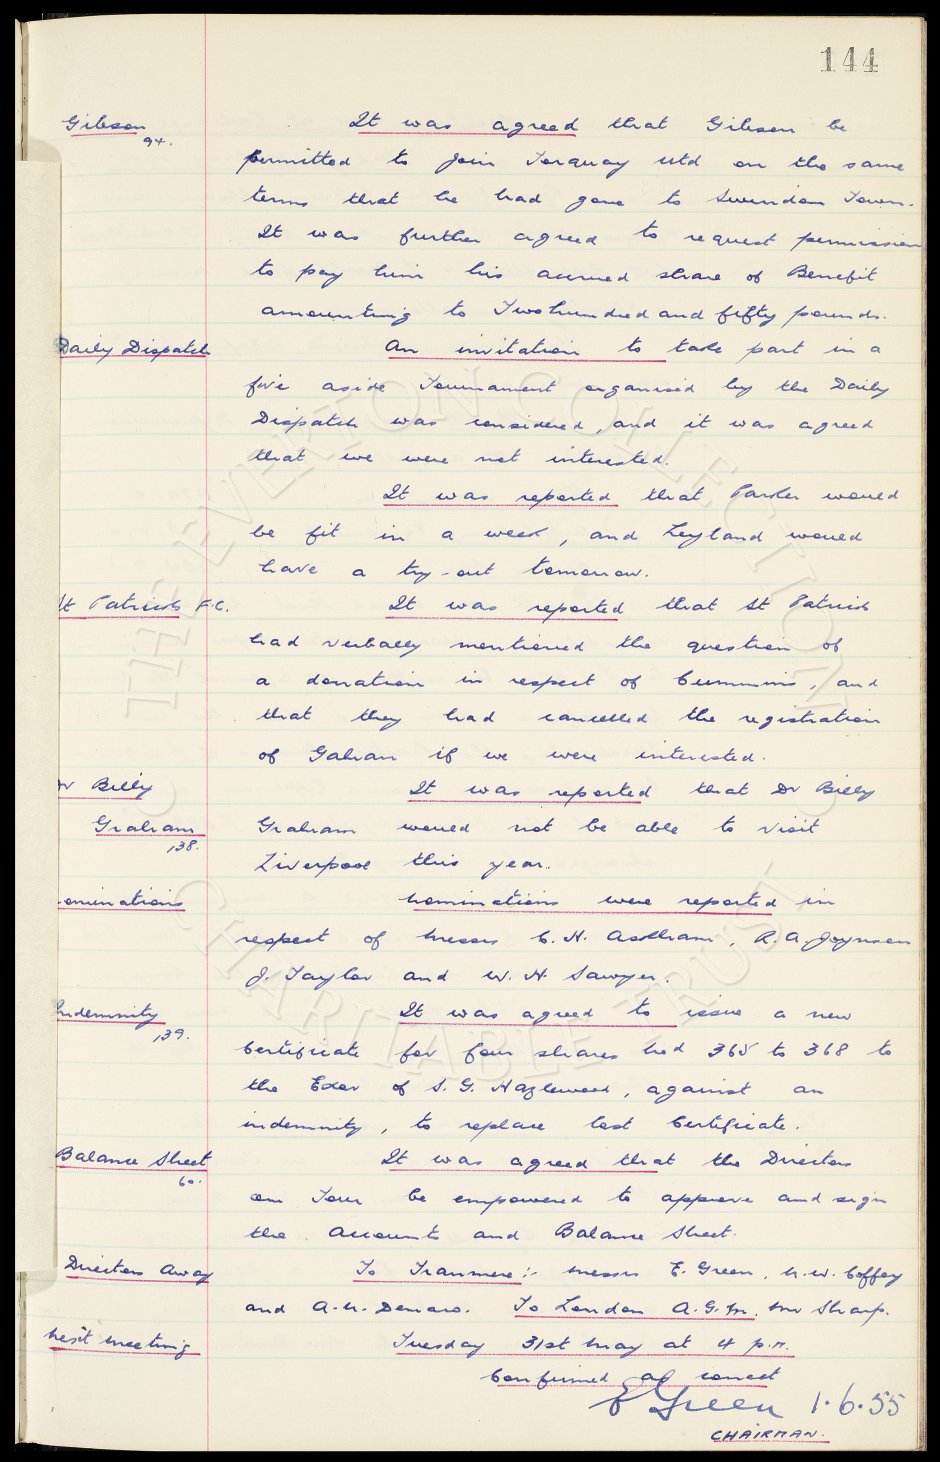 144
Gibson 94.
It was agreed that Gibson be
permitted to join Torquay Utd on the same
terms that he had gone to Swindon Town.
It was further agreed to request permission
to pay him his accrued share of Benefit
amounting to Two hundred and fifty pounds.
Daily Dispatch
An invitation to take part in a
five aside Tournament organised by the Daily
Dispatch was considered, and it was agreed
that we were not interested.
It was reported that Parker would
be fit in a week, and Leyland would
have a try-out tomorrow.
St Patricks F.C.
It was reported that St Patricks
had verbally mentioned the question of
a donation in respect of Cummins, and
that they had cancelled the registration
of Gahan if we were interested.
Dr Billy
Graham
138.
It was reported that Dr Billy
Graham would not be able to visit
Liverpool this year.
ominations
Nominations were reported in
respect of Messrs C. H. Askham, R. A. Joynson
J. Taylor and W. H. Sawyer.
Indemnity
139.
It was agreed to issue a new
Certificate for four shares Nod 365 to 368 to
the Exor of S. G. Hazlewood, against an
indemnity, to replace lost Certificate.
Balance Sheet
60.
It was agreed that the Directors
on Tour be empowered to approve and sign
the Accounts and Balance Sheet.
Directors Away
To Tranmere:- Messrs E. Green, N. W. Coffey
and A. M. Denaro. To London A.G.M. Mr Sharp.
Next Meeting
Tuesday 31st May at 4 p.m.
Confirmed as correct
E Green 1.6.55
CHAIRMAN.
THE EVERTON COLLECTION
CHARITABLE TRUST